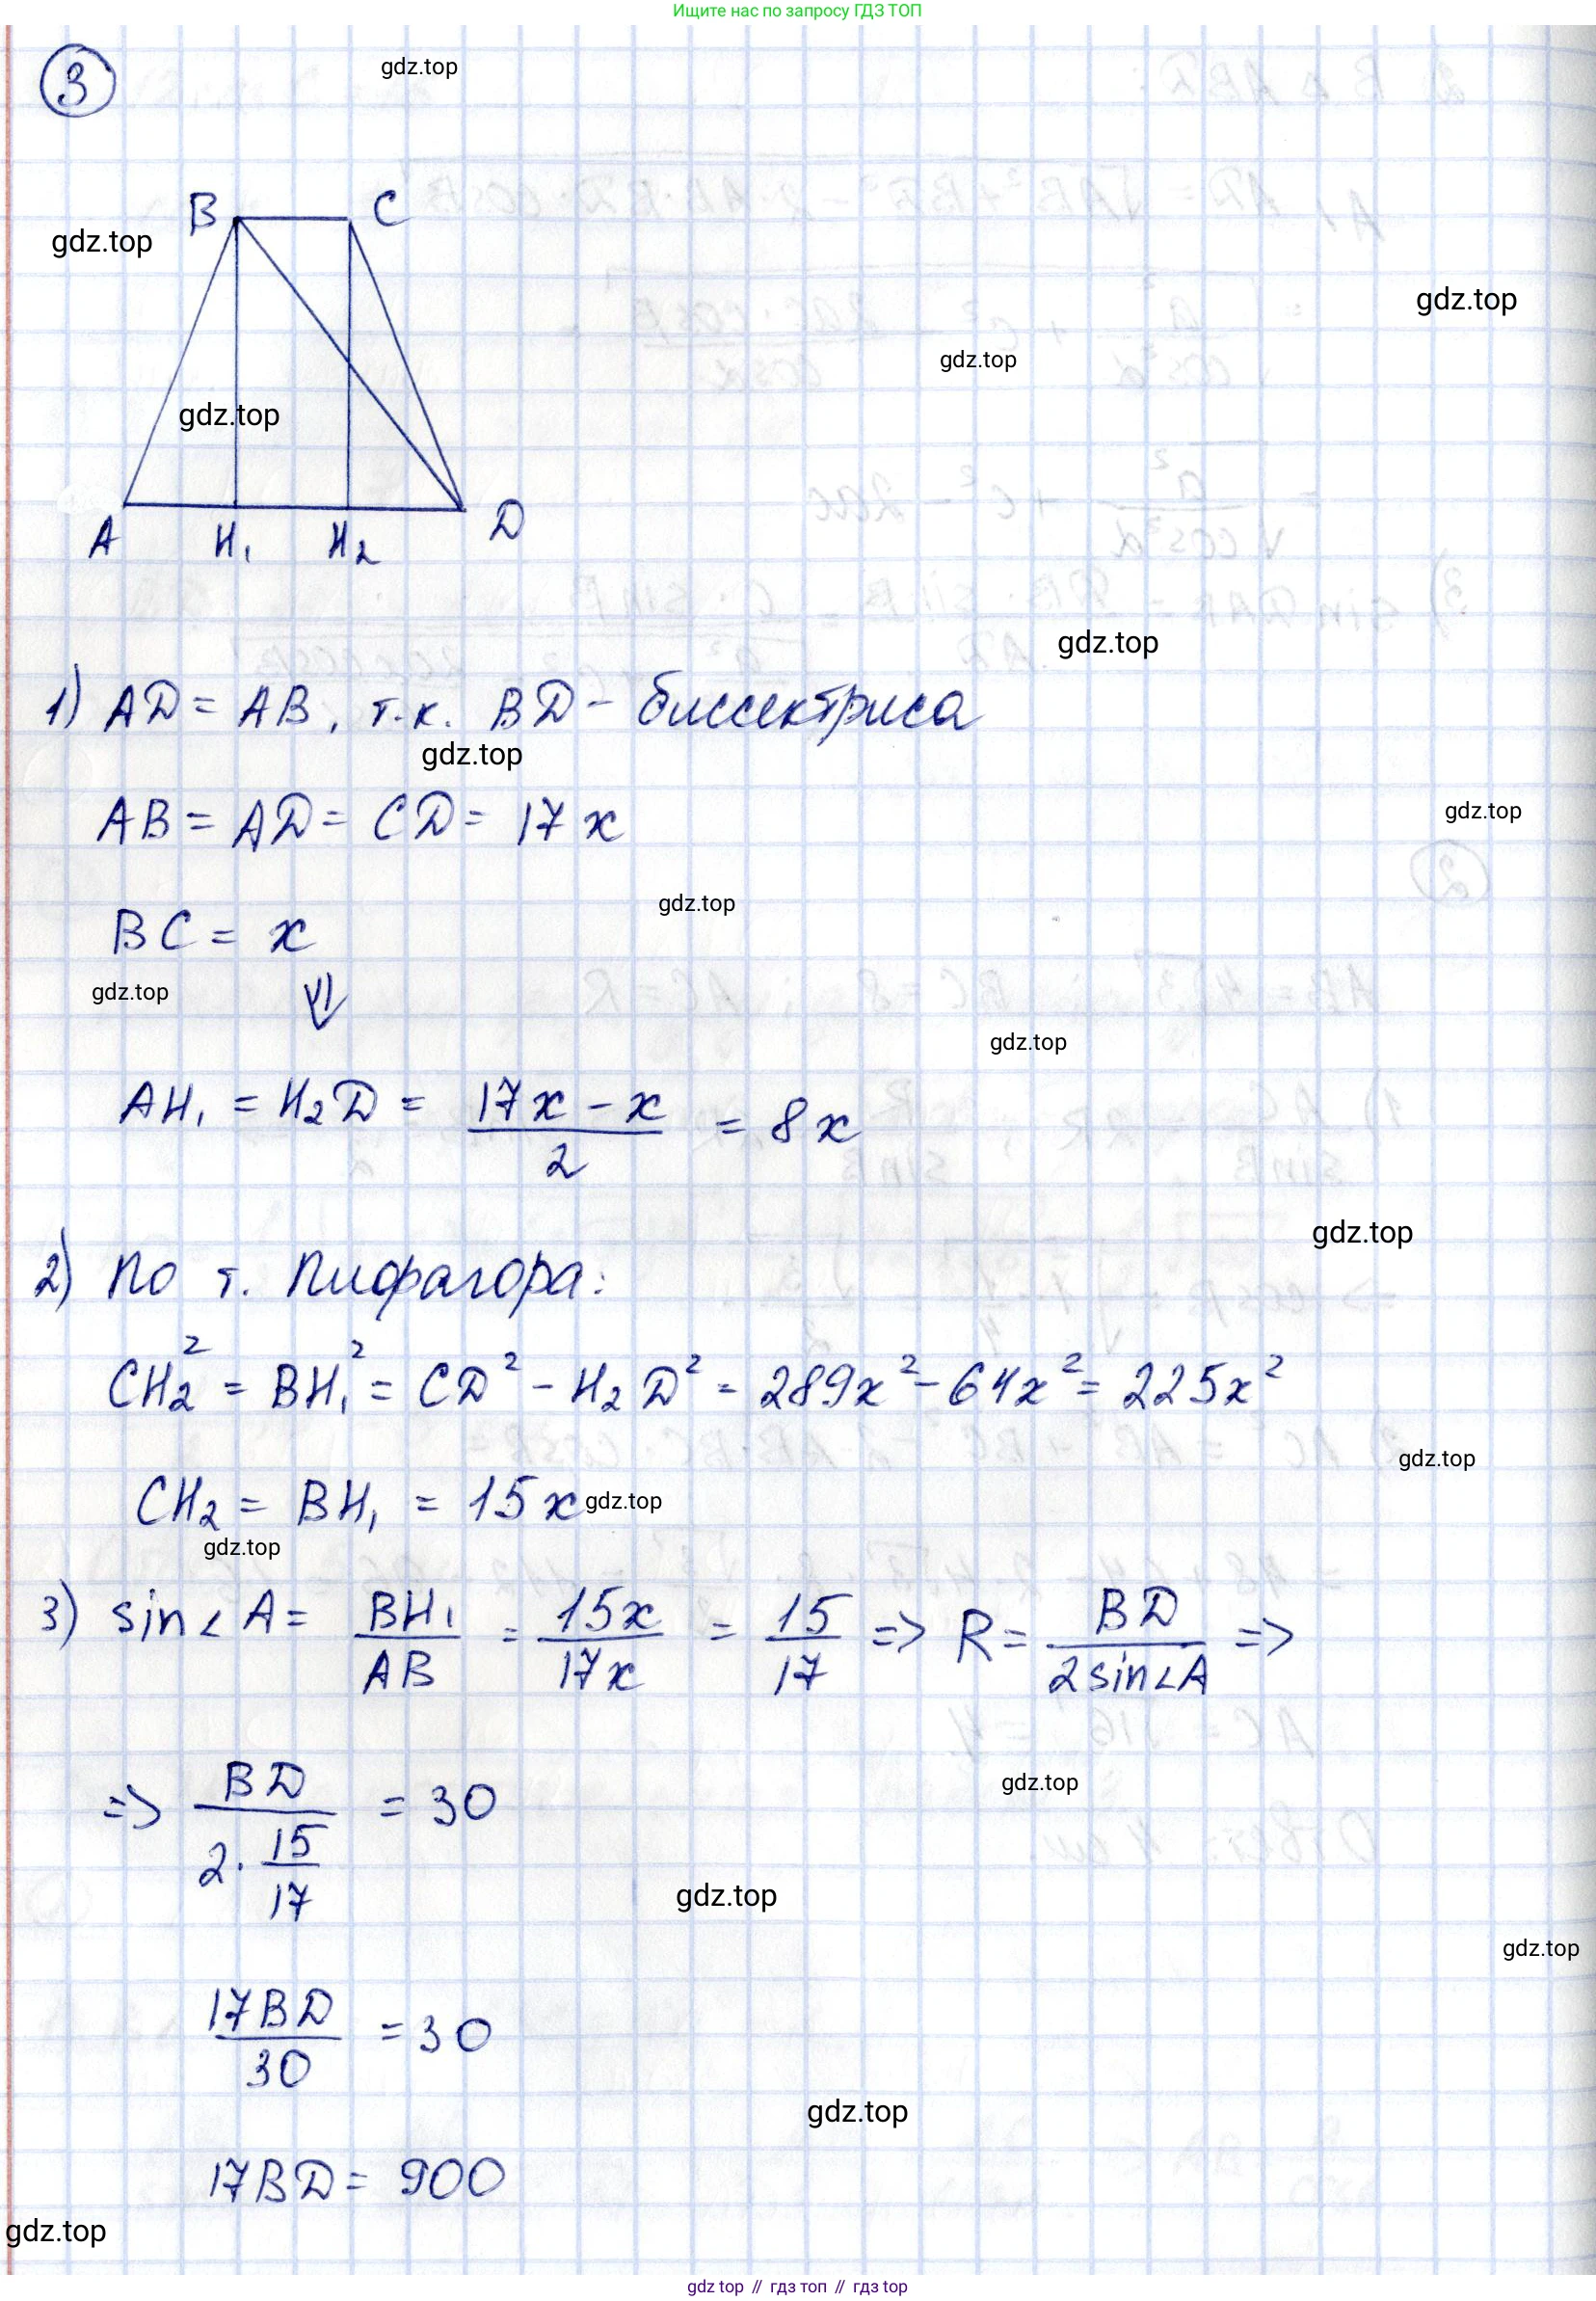 Ищите нас по запросу ГДЗ ТОП
3
gdz.top
B C
gdz.top
gdz.top
gdz.top
gdz.top
A H₁ H₂ D
gdz.top
1) AD = AB, т.к. BD - биссектриса
gdz.top
AB = AD = CD = 17x
gdz.top
gdz.top
BC = x
gdz.top
⇓
gdz.top
AH₁ = H₂D = (17x - x)/2 = 8x
gdz.top
2) По т. Пифагора:
CH₂² = BH₁² = CD² - H₂D² = 289x² - 64x² = 225x²
gdz.top
CH₂ = BH₁ = 15x
gdz.top
gdz.top
3) sin∠A = BH₁/AB = 15x/17x = 15/17 => R = BD/(2sin∠A) =>
gdz.top
=> BD/(2·15/17) = 30
gdz.top
gdz.top
17BD/30 = 30
gdz.top
17BD = 900
gdz.top
gdz top // гдз топ // гдз top